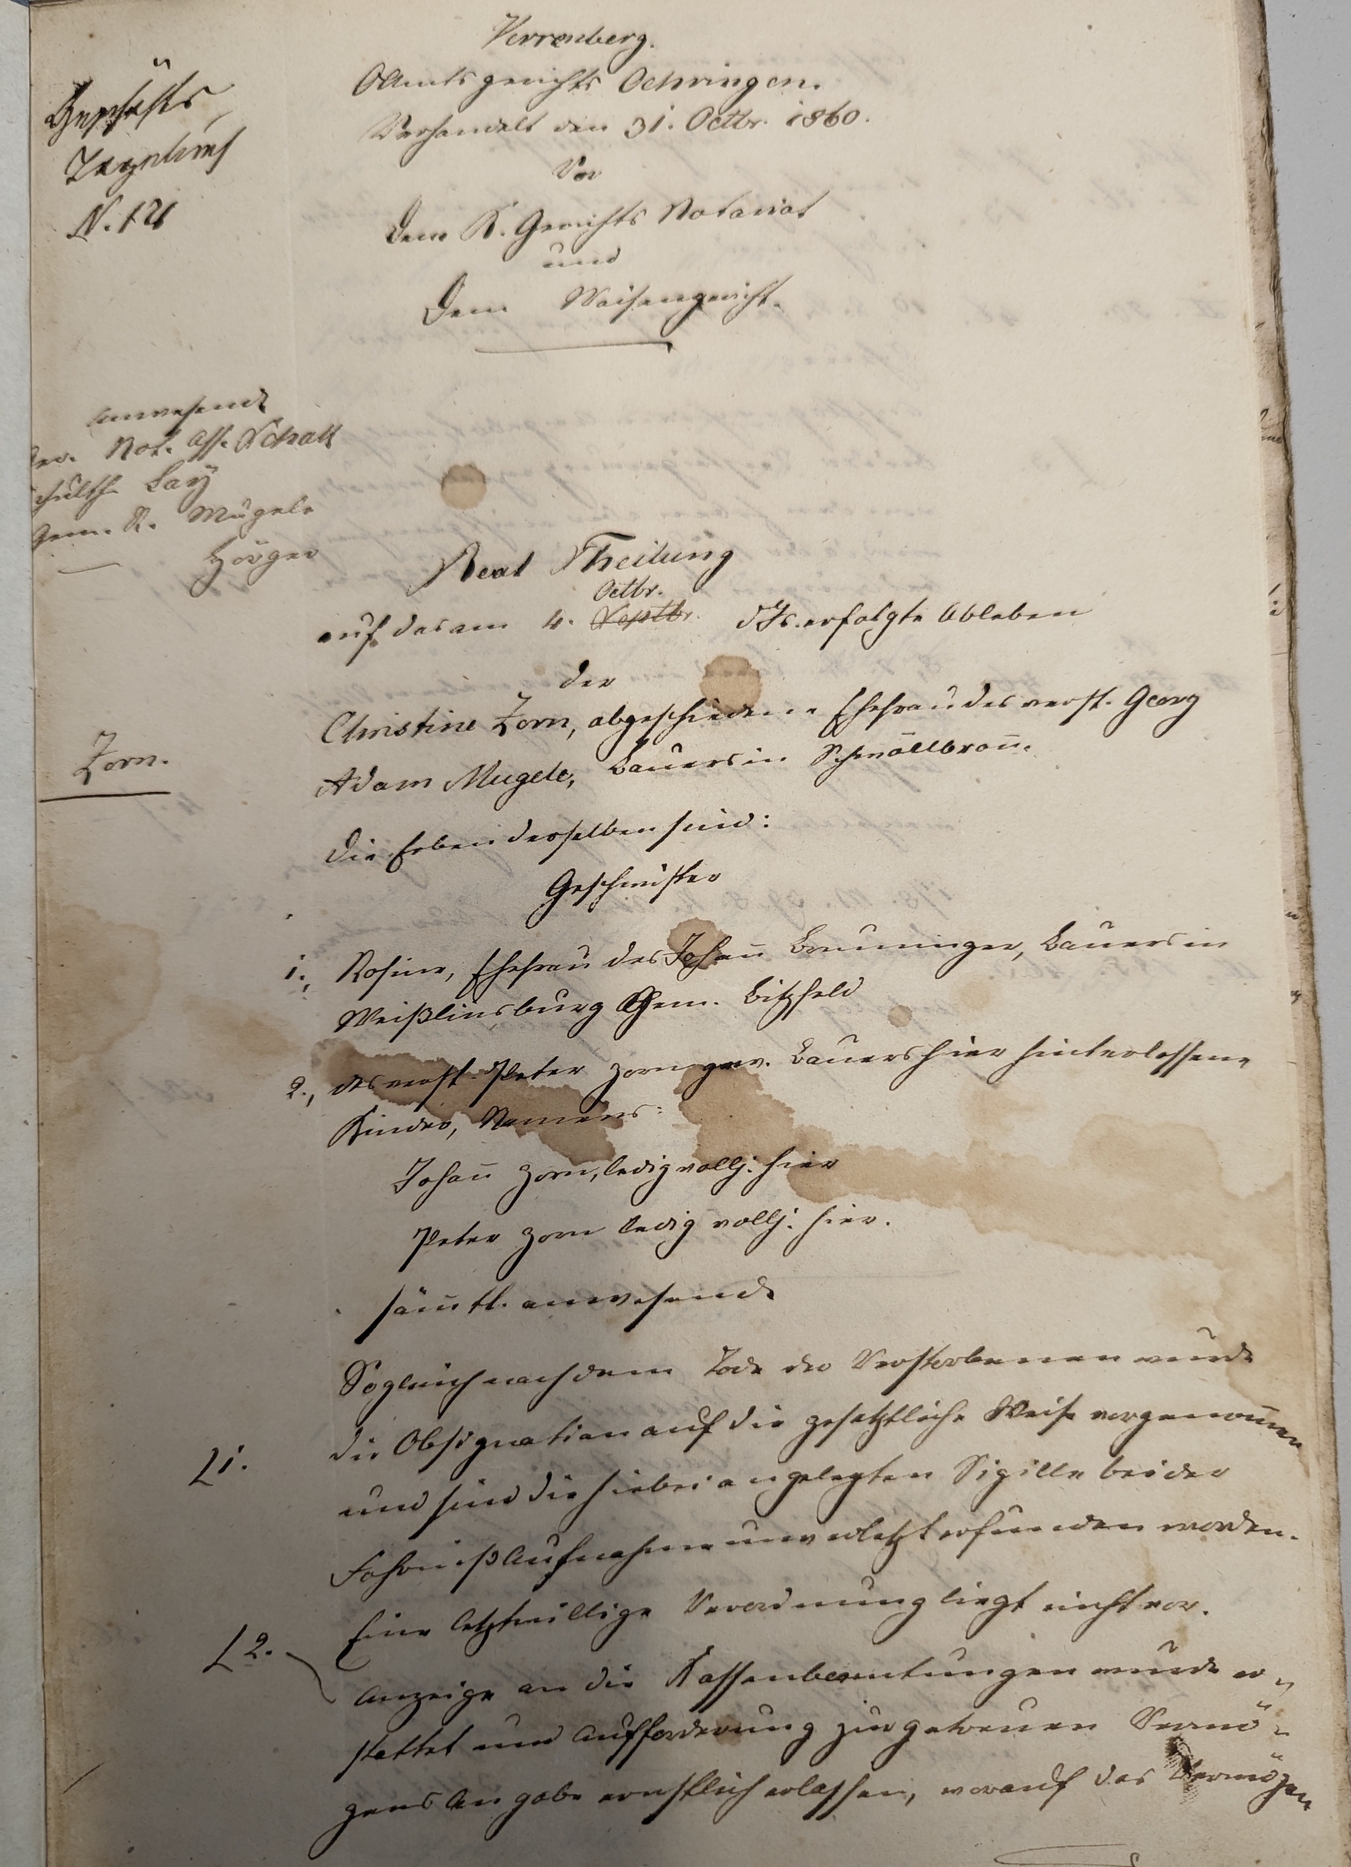 Verrenberg.
OAmtsgerichts Oehringen.
Verhandelt den 31. Octbr. 1860.
Vor
dem K. Gerichts Notariat
und
dem Waisengericht.
Geschäfts
Tagebuch
N. 121
Anwesend
Not. Ass. Schall
Schulth. Lay
Gem. R. Mugele
Hörger
Real Theilung
Octbr.
auf das am 4. Septbr. d. Js. erfolgte Ableben
der
Christine Zorn, abgeschiedene Ehefrau des verst. Georg
Adam Mugele, Bauers in Schwöllbron̄.
Zorn.
Die Erben derselben sind:
Geschwister
1., Rosine, Ehefrau des Johan̄ Breuninger, Bauers in
Weißlinsburg Gem. Bitzfeld
2., des verst. Peter Zorn gew. Bauers hier hinterlassene
Kinder, Namens:
Johan̄ Zorn, ledig vollj. hier
Peter Zorn ledig vollj. hier.
säm̄tl. anwesend
Sogleich nach dem Tode der Verstorbenen wurde
die Obsignation auf die gesetzliche Weise vorgenom̄en
L 1.
und sind die hiebei angelegten Sigille bei der
Fahrniß Aufnahme unverletzt erfunden worden.
Eine letztwillige Verordnung liegt nicht vor.
L 2.
Anzeige an die Kassenbeamtungen wurde er=
stattet und Aufforderung zur getreuen Vermö=
gens Angabe ernstlich erlassen, worauf das Vermögen